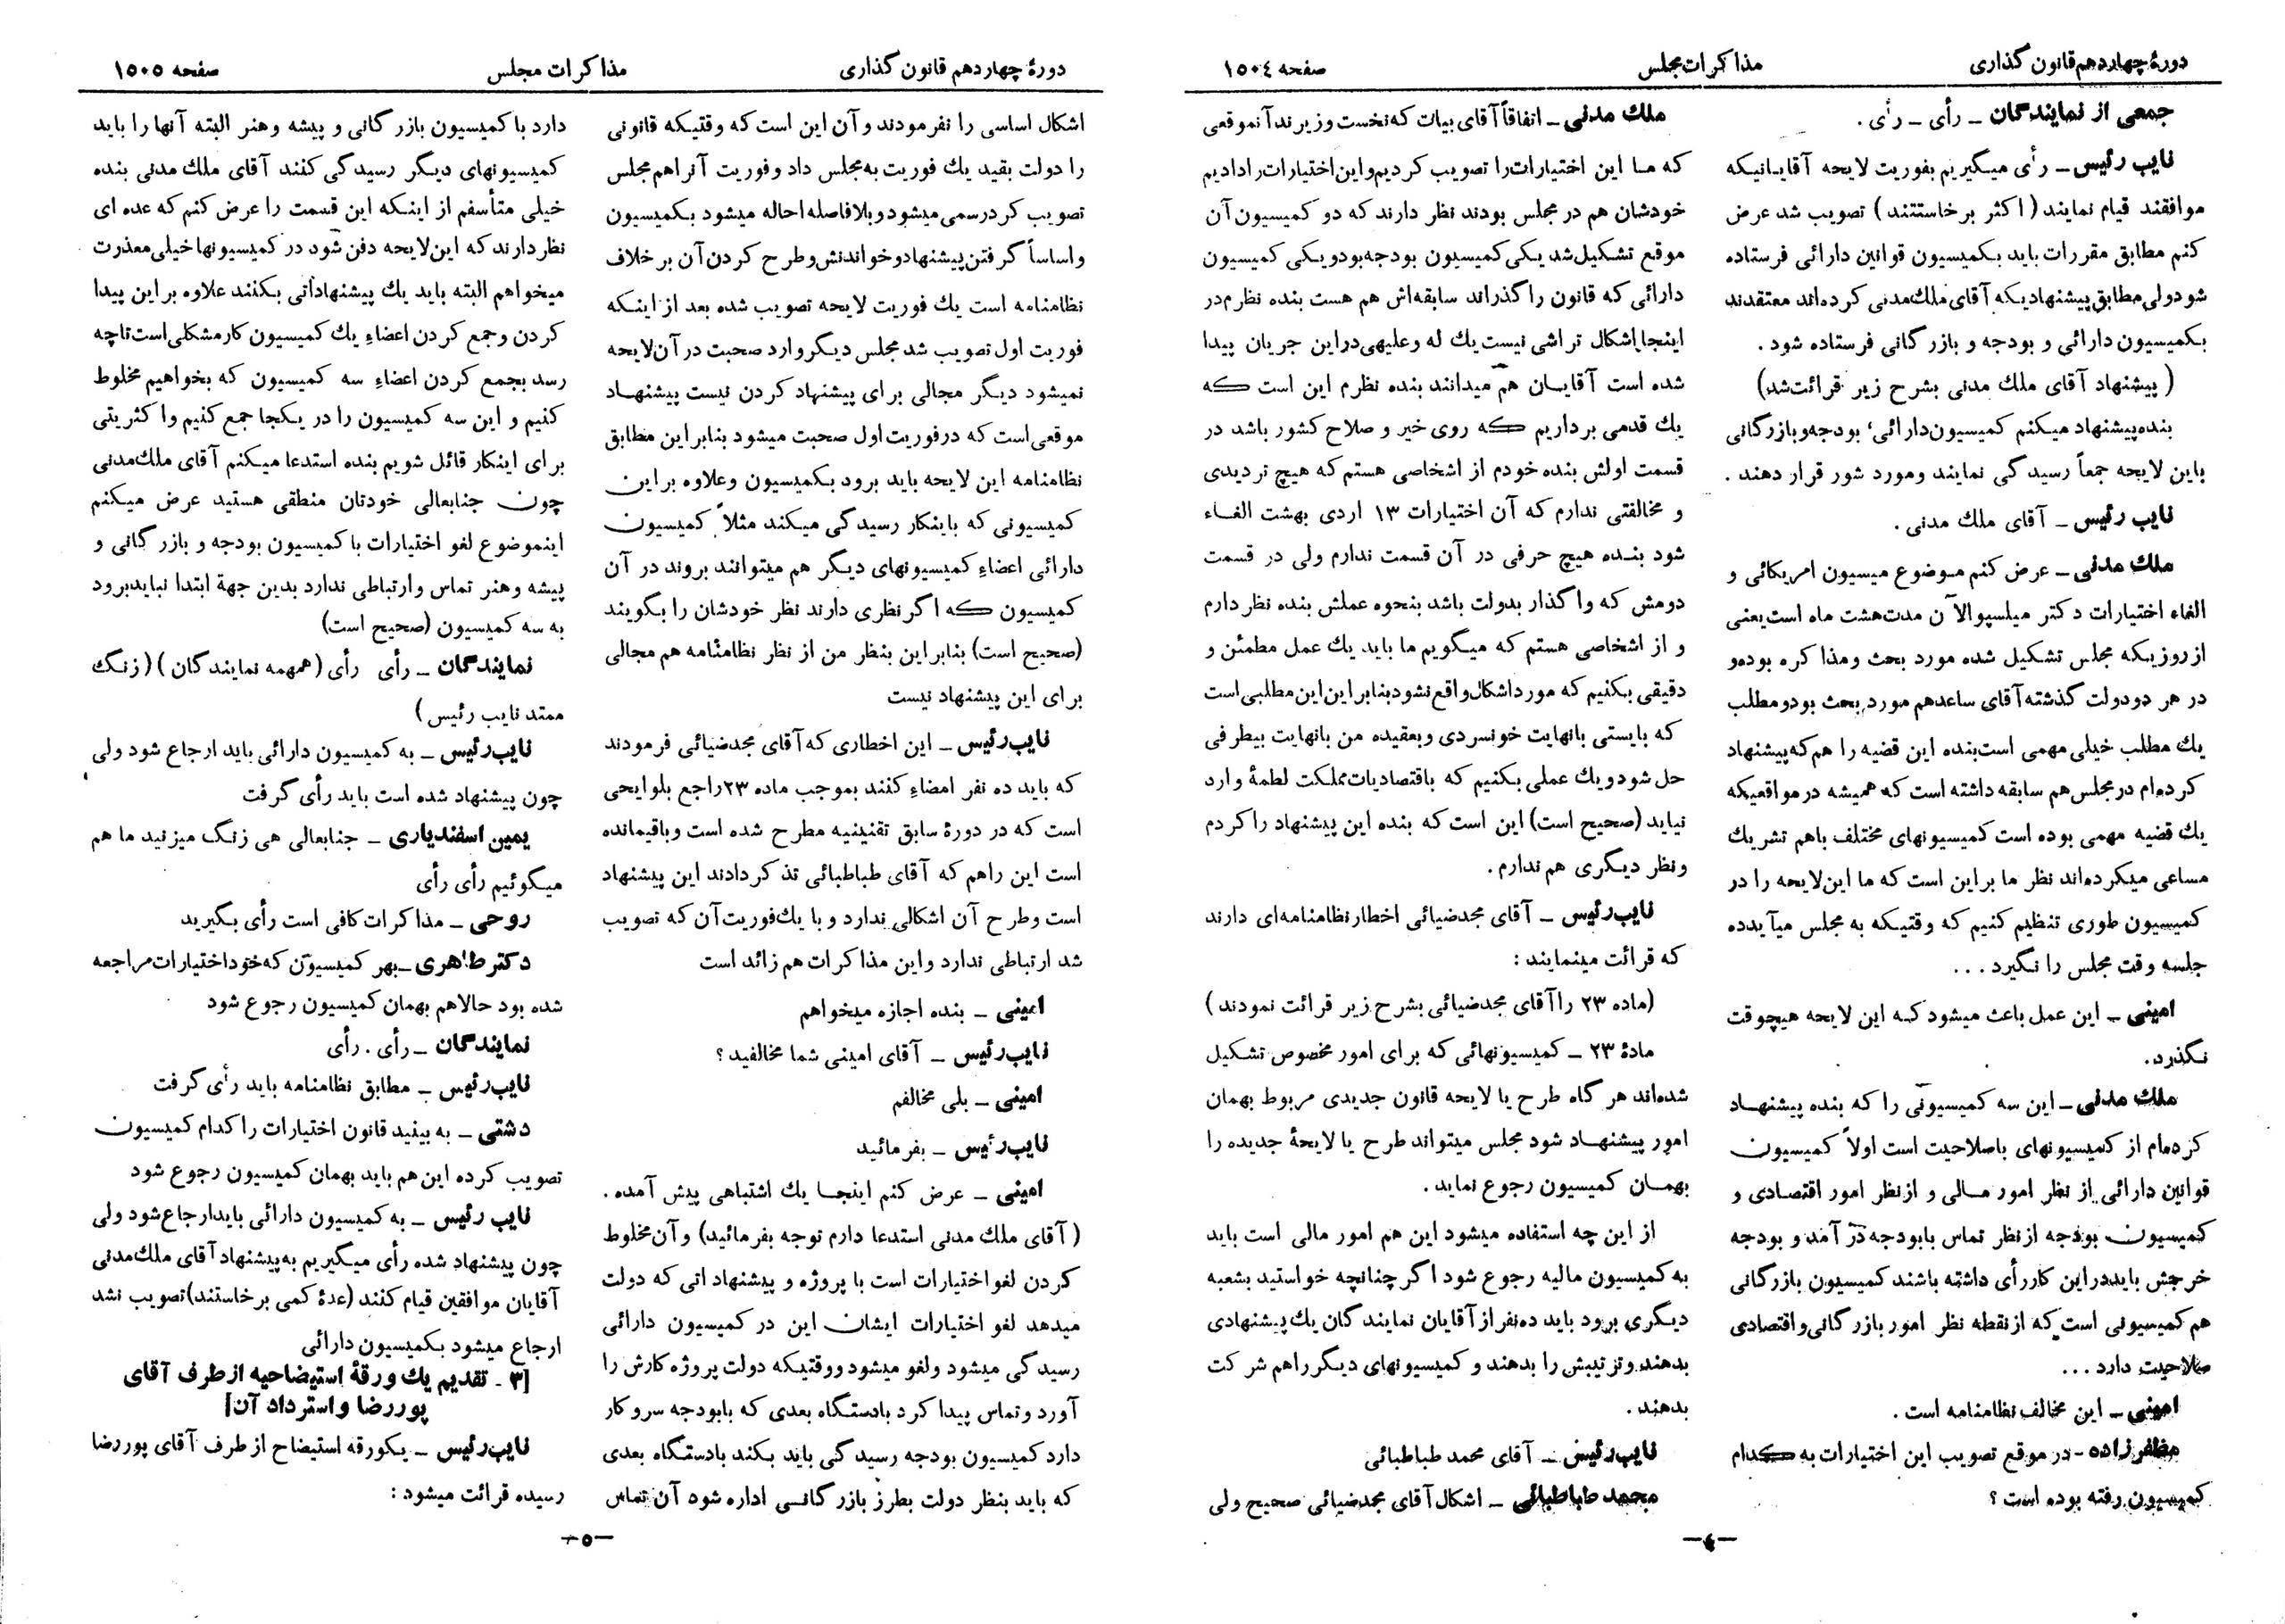 دورهٔ چهاردهم قانون گذاری
مذاکرات مجلس
صفحه ۱۵۰٤
جمعی از نمایندگان ـ رأی ـ رأی .
نایب رئیس ـ رأی میگیریم بفوریت لایحه آقایانیکه
موافقند قیام نمایند ( اکثر برخاستند ) تصویب شد عرض
کنم مطابق مقررات باید بکمیسیون قوانین دارائی فرستاده
شود ولی مطابق پیشنهادیکه آقای ملك مدنی کرده‌اند معتقدند
بکمیسیون دارائی و بودجه و بازرگانی فرستاده شود .
( پیشنهاد آقای ملك مدنی بشرح زیر قرائت شد )
بنده پیشنهاد میکنم کمیسیون دارائی، بودجه و بازرگانی
باین لایحه جمعاً رسیدگی نمایند و مورد شور قرار دهند .
نایب رئیس ـ آقای ملك مدنی .
ملك مدنی ـ عرض کنم موضوع میسیون امریکائی و
الغاء اختیارات دکتر میلسپو الآن مدت هشت ماه است یعنی
از روزیکه مجلس تشکیل شده مورد بحث و مذاکره بوده و
در هر دو دولت گذشته آقای ساعدهم مورد بحث بود و مطلب
یك مطلب خیلی مهمی است بنده این قضیه را هم که پیشنهاد
کرده‌ام در مجلس هم سابقه داشته است که همیشه در مواقعیکه
یك قضیه مهمی بوده است کمیسیونهای مختلف باهم تشریك
مساعی میکرده‌اند نظر ما بر این است که ما این لایحه را در
کمیسیون طوری تنظیم کنیم که وقتیکه به مجلس میآید ده
جلسه وقت مجلس را نگیرد . . .
امینی ـ این عمل باعث میشود که این لایحه هیچوقت
نگذرد .
ملك مدنی ـ این سه کمیسیونی را که بنده پیشنهاد
کرده‌ام از کمیسیونهای باصلاحیت است اولاً کمیسیون
قوانین دارائی از نظر امور مالی و از نظر امور اقتصادی و
کمیسیون بودجه از نظر تماس بابودجه درآمد و بودجه
خرجش باید در این کار رأی داشته باشند کمیسیون بازرگانی
هم کمیسیونی است که از نقطه نظر امور بازرگانی و اقتصادی
صلاحیت دارد . . .
امینی ـ این مخالف نظامنامه است .
مظفرزاده ـ در موقع تصویب این اختیارات به کدام
کمیسیون رفته بوده است ؟
ملك مدنی ـ اتفاقاً آقای بیات که نخست وزیرند آنموقعی
که ما این اختیارات را تصویب کردیم و این اختیارات را دادیم
خودشان هم در مجلس بودند نظر دارند که دو کمیسیون آن
موقع تشکیل شد یکی کمیسیون بودجه بود و یکی کمیسیون
دارائی که قانون را گذراند سابقه‌اش هم هست بنده نظرم در
اینجا اشکال تراشی نیست یك له و علیهی در این جریان پیدا
شده است آقایان هم میدانند بنده نظرم این است که
یك قدمی برداریم که روی خیر و صلاح کشور باشد در
قسمت اولش بنده خودم از اشخاصی هستم که هیچ تردیدی
و مخالفتی ندارم که آن اختیارات ۱۳ اردی بهشت الغاء
شود بنده هیچ حرفی در آن قسمت ندارم ولی در قسمت
دومش که واگذار بدولت باشد بنحوه عملش بنده نظر دارم
و از اشخاصی هستم که میگویم ما باید یك عمل مطمئن و
دقیقی بکنیم که مورد اشکال واقع نشود بنابر این این مطلبی است
که بایستی بانهایت خونسردی و بعقیده من بانهایت بیطرفی
حل شود و یك عملی بکنیم که باقتصادیات مملکت لطمهٔ وارد
نیاید (صحیح است) این است که بنده این پیشنهاد را کردم
و نظر دیگری هم ندارم .
نایب رئیس ـ آقای مجدضیائی اخطار نظامنامه‌ای دارند
که قرائت مینمایند :
(ماده ۲۳ را آقای مجدضیائی بشرح زیر قرائت نمودند )
مادهٔ ۲۳ ـ کمیسیونهائی که برای امور مخصوص تشکیل
شده‌اند هر گاه طرح یا لایحه قانون جدیدی مربوط بهمان
امور پیشنهاد شود مجلس میتواند طرح یا لایحهٔ جدیده را
بهمان کمیسیون رجوع نماید .
از این چه استفاده میشود این هم امور مالی است باید
به کمیسیون مالیه رجوع شود اگر چنانچه خواستید بشعبه
دیگری برود باید ده نفر از آقایان نمایندگان یك پیشنهادی
بدهند و ترتیبش را بدهند و کمیسیونهای دیگر را هم شرکت
بدهند .
نایب رئیس ـ آقای محمد طباطبائی
محمد طباطبائی ـ اشکال آقای مجدضیائی صحیح ولی
ـ٤ـ
دورهٔ چهاردهم قانون گذاری
مذاکرات مجلس
صفحه ۱۵۰۵
اشکال اساسی را نفرمودند و آن این است که وقتیکه قانونی
را دولت بقید یك فوریت به مجلس داد و فوریت آنراهم مجلس
تصویب کرد رسمی میشود و بلافاصله احاله میشود بکمیسیون
و اساساً گرفتن پیشنهاد و خواندنش و طرح کردن آن بر خلاف
نظامنامه است یك فوریت لایحه تصویب شده بعد از اینکه
فوریت اول تصویب شد مجلس دیگر وارد صحبت در آن لایحه
نمیشود دیگر مجالی برای پیشنهاد کردن نیست پیشنهاد
موقعی است که در فوریت اول صحبت میشود بنابر این مطابق
نظامنامه این لایحه باید برود بکمیسیون و علاوه بر این
کمیسیونی که باینکار رسیدگی میکند مثلاً کمیسیون
دارائی اعضاء کمیسیونهای دیگر هم میتوانند بروند در آن
کمیسیون که اگر نظری دارند نظر خودشان را بگویند
(صحیح است) بنابر این بنظر من از نظر نظامنامه هم مجالی
برای این پیشنهاد نیست
نایب رئیس ـ این اخطاری که آقای مجدضیائی فرمودند
که باید ده نفر امضاء کنند بموجب ماده ۲۳ راجع بلوایحی
است که در دورهٔ سابق تقنینیه مطرح شده است و باقیمانده
است این راهم که آقای طباطبائی تذکر دادند این پیشنهاد
است و طرح آن اشکالی ندارد و با یك فوریت آن که تصویب
شد ارتباطی ندارد و این مذاکرات هم زائد است
امینی ـ بنده اجازه میخواهم
نایب رئیس ـ آقای امینی شما مخالفید ؟
امینی ـ بلی مخالفم
نایب رئیس ـ بفرمائید
امینی ـ عرض کنم اینجا یك اشتباهی پیش آمده .
( آقای ملك مدنی استدعا دارم توجه بفرمائید) و آن مخلوط
کردن لغو اختیارات است با پروژه و پیشنهاداتی که دولت
میدهد لغو اختیارات ایشان این در کمیسیون دارائی
رسیدگی میشود و لغو میشود و وقتیکه دولت پروژه کارش را
آورد و تماس پیدا کرد بادستگاه بعدی که بابودجه سر و کار
دارد کمیسیون بودجه رسیدگی باید بکند بادستگاه بعدی
که باید بنظر دولت بطرز بازرگانی اداره شود آن تماس
دارد با کمیسیون بازرگانی و پیشه و هنر البته آنها را باید
کمیسیونهای دیگر رسیدگی کنند آقای ملك مدنی بنده
خیلی متأسفم از اینکه این قسمت را عرض کنم که عده ای
نظر دارند که این لایحه دفن شود در کمیسیونها خیلی معذرت
میخواهم البته باید یك پیشنهاداتی بکنند علاوه بر این پیدا
کردن و جمع کردن اعضاء یك کمیسیون کار مشکلی است تاچه
رسد بجمع کردن اعضاء سه کمیسیون که بخواهیم مخلوط
کنیم و این سه کمیسیون را در یکجا جمع کنیم و اکثریتی
برای اینکار قائل شویم بنده استدعا میکنم آقای ملك مدنی
چون جنابعالی خودتان منطقی هستید عرض میکنم
اینموضوع لغو اختیارات با کمیسیون بودجه و بازرگانی و
پیشه و هنر تماس و ارتباطی ندارد بدین جهة ابتدا نباید برود
به سه کمیسیون (صحیح است)
نمایندگان ـ رأی رأی (همهمه نمایندگان ) ( زنگ
ممتد نایب رئیس )
نایب رئیس ـ به کمیسیون دارائی باید ارجاع شود ولی
چون پیشنهاد شده است باید رأی گرفت
یمین اسفندیاری ـ جنابعالی هی زنگ میزنید ما هم
میگوئیم رأی رأی
روحی ـ مذاکرات کافی است رأی بگیرید
دکتر طاهری ـ بهر کمیسیون که خود اختیارات مراجعه
شده بود حالاهم بهمان کمیسیون رجوع شود
نمایندگان ـ رأی . رأی
نایب رئیس ـ مطابق نظامنامه باید رأی گرفت
دشتی ـ به بینید قانون اختیارات را کدام کمیسیون
تصویب کرده این هم باید بهمان کمیسیون رجوع شود
نایب رئیس ـ به کمیسیون دارائی باید ارجاع شود ولی
چون پیشنهاد شده رأی میگیریم به پیشنهاد آقای ملك مدنی
آقایان موافقین قیام کنند (عدهٔ کمی برخاستند) تصویب نشد
ارجاع میشود بکمیسیون دارائی
[۳ ـ تقدیم یك ورقهٔ استیضاحیه از طرف آقای
پوررضا و استرداد آن]
نایب رئیس ـ یکورقه استیضاح از طرف آقای پوررضا
رسیده قرائت میشود :
ـ۵ـ